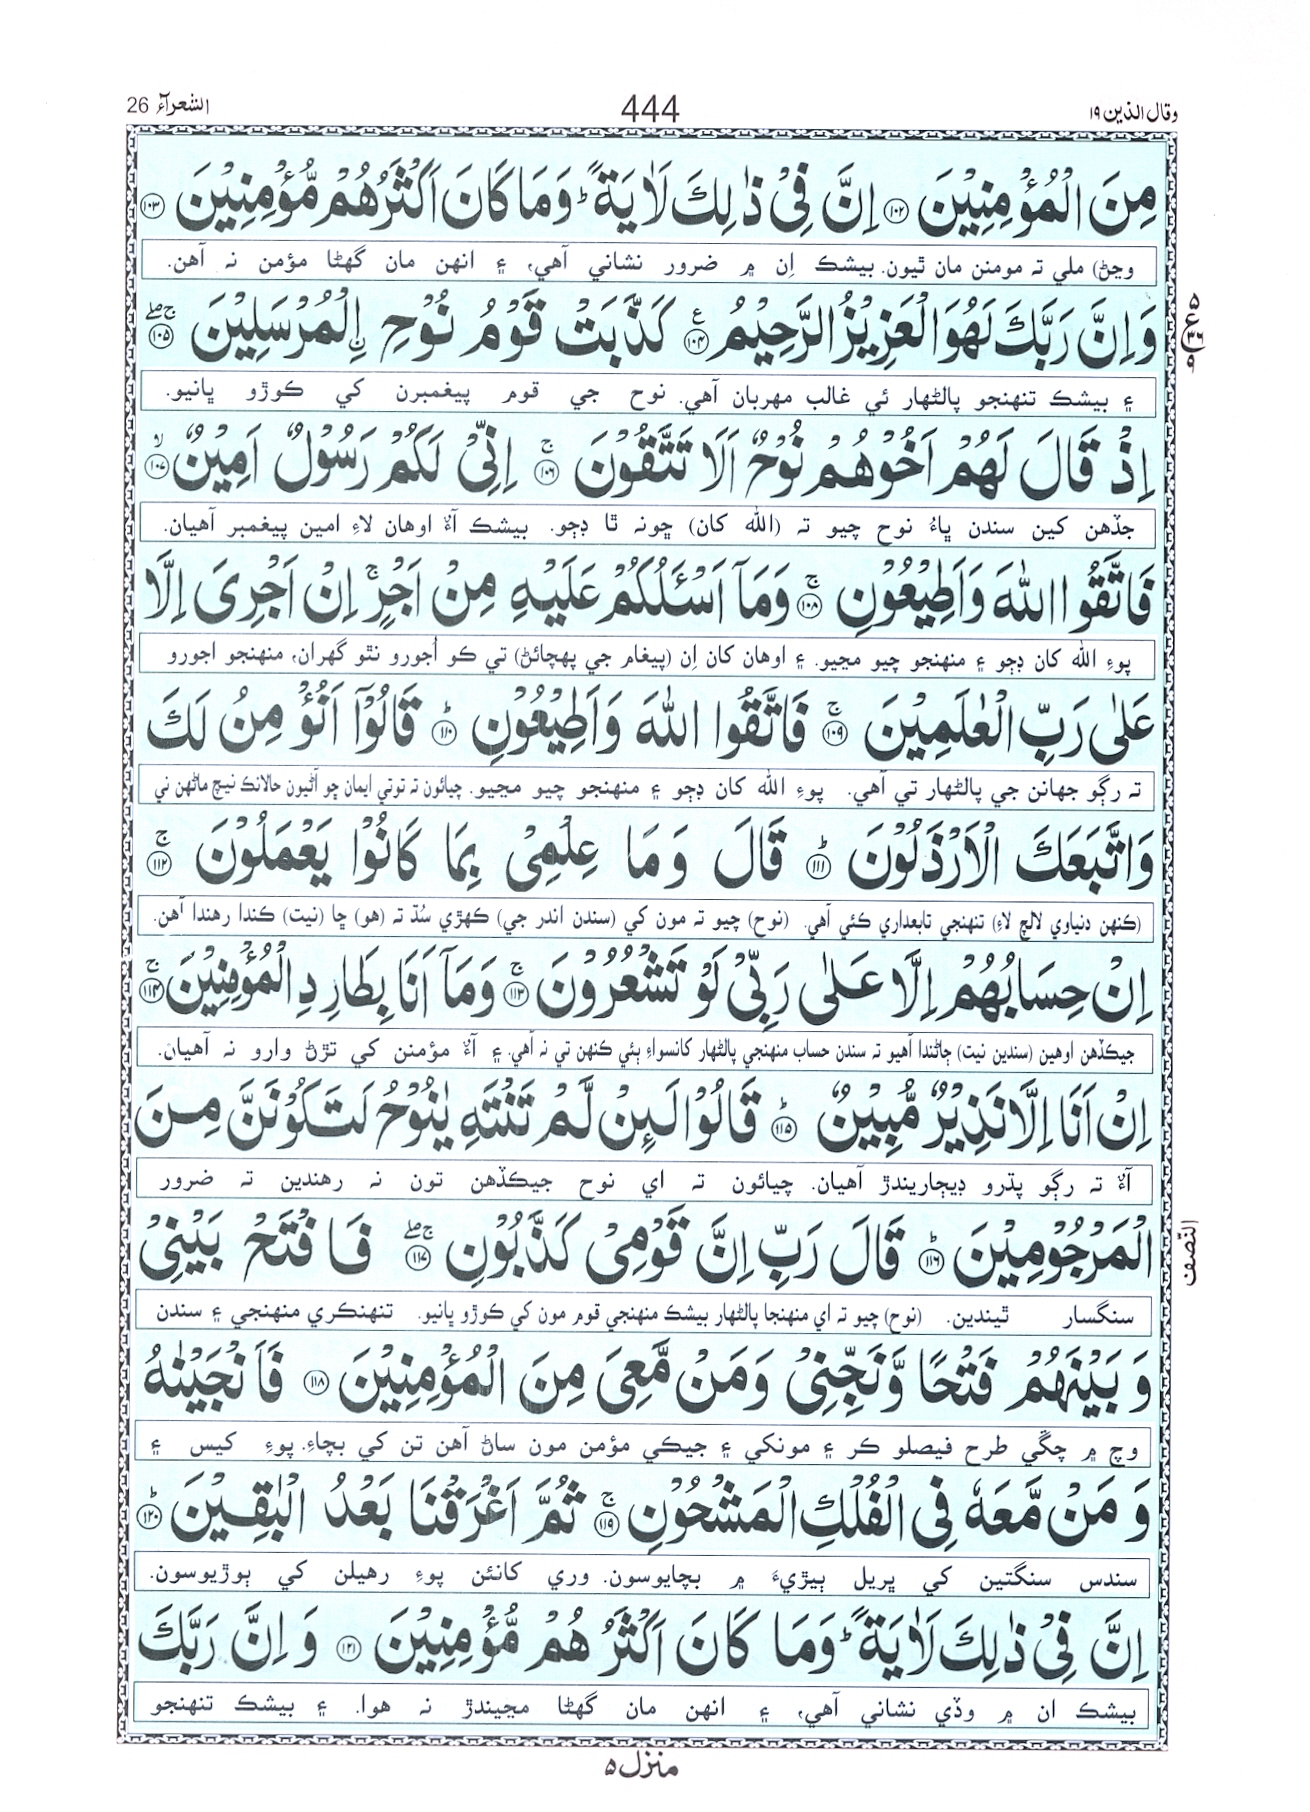 وقال الذين ١٩
444
الشعرآء 26
مِنَ الْمُؤْمِنِيْنَ ﴿١٠٢﴾ اِنَّ فِيْ ذٰلِكَ لَاٰيَةً ؕ وَمَا كَانَ اَكْثَرُهُمْ مُّؤْمِنِيْنَ ﴿١٠٣﴾
وڃڻ) ملي ته مومنن مان ٿيون. بيشڪ اِن ۾ ضرور نشاني آهي، ۽ انهن مان گهڻا مؤمن نه آهن.
وَاِنَّ رَبَّكَ لَهُوَ الْعَزِيْزُ الرَّحِيْمُ ﴿١٠٤﴾ ع كَذَّبَتْ قَوْمُ نُوْحِ ۨالْمُرْسَلِيْنَ ﴿١٠٥﴾ ۚۖ
۽ بيشڪ تنهنجو پالڻهار ئي غالب مهربان آهي. نوح جي قوم پيغمبرن کي ڪوڙو ڀانيو.
اِذْ قَالَ لَهُمْ اَخُوْهُمْ نُوْحٌ اَلَا تَتَّقُوْنَ ﴿١٠٦﴾ ۚ اِنِّيْ لَكُمْ رَسُوْلٌ اَمِيْنٌ ﴿١٠٧﴾ ۙ
جڏهن کين سندن ڀاءُ نوح چيو ته (الله کان) ڇونه ٿا ڊڄو. بيشڪ آءٌ اوهان لاءِ امين پيغمبر آهيان.
فَاتَّقُوا اللّٰهَ وَاَطِيْعُوْنِ ﴿١٠٨﴾ ۚ وَمَاۤ اَسْـَٔلُكُمْ عَلَيْهِ مِنْ اَجْرٍ ۚ اِنْ اَجْرِيَ اِلَّا
پوءِ الله کان ڊڄو ۽ منهنجو چيو مڃيو. ۽ اوهان کان اِن (پيغام جي پهچائڻ) تي ڪو اُجورو نٿو گهران، منهنجو اجورو
عَلٰى رَبِّ الْعٰلَمِيْنَ ﴿١٠٩﴾ ۚ فَاتَّقُوا اللّٰهَ وَاَطِيْعُوْنِ ﴿١١٠﴾ ؕ قَالُوْۤا اَنُؤْمِنُ لَكَ
ته رڳو جهانن جي پالڻهار تي آهي. پوءِ الله کان ڊڄو ۽ منهنجو چيو مڃيو. چيائون ته توتي ايمان ڇو آڻيون حالانڪ نيچ ماڻهن ئي
وَاتَّبَعَكَ الْاَرْذَلُوْنَ ﴿١١١﴾ ؕ قَالَ وَمَا عِلْمِيْ بِمَا كَانُوْا يَعْمَلُوْنَ ﴿١١٢﴾ ۚ
(ڪنهن دنياوي لالچ لاءِ) تنهنجي تابعداري ڪئي آهي. (نوح) چيو ته مون کي (سندن اندر جي) ڪهڙي سُڌ ته (هو) ڇا (نيت) ڪندا رهندا آهن.
اِنْ حِسَابُهُمْ اِلَّا عَلٰى رَبِّيْ لَوْ تَشْعُرُوْنَ ﴿١١٣﴾ ۚ وَمَاۤ اَنَا بِطَارِدِ الْمُؤْمِنِيْنَ ﴿١١٤﴾ ۚ
جيڪڏهن اوهين (سندين نيت) ڄاڻندا آهيو ته سندن حساب منهنجي پالڻهار کانسواءِ ٻئي ڪنهن تي نه آهي. ۽ آءٌ مؤمنن کي تڙڻ وارو نہ آهيان.
اِنْ اَنَا اِلَّا نَذِيْرٌ مُّبِيْنٌ ﴿١١٥﴾ ؕ قَالُوْا لَئِنْ لَّمْ تَنْتَهِ يٰنُوْحُ لَتَكُوْنَنَّ مِنَ
آءٌ ته رڳو پڌرو ڊيڄاريندڙ آهيان. چيائون ته اي نوح جيڪڏهن تون نه رهندين ته ضرور
الْمَرْجُوْمِيْنَ ﴿١١٦﴾ ؕ قَالَ رَبِّ اِنَّ قَوْمِيْ كَذَّبُوْنِ ﴿١١٧﴾ ۚۖ فَافْتَحْ بَيْنِيْ
النّصف
سنگسار ٿيندين. (نوح) چيو ته اي منهنجا پالڻهار بيشڪ منهنجي قوم مون کي ڪوڙو ڀانيو. تنهنڪري منهنجي ۽ سندن
وَبَيْنَهُمْ فَتْحًا وَّنَجِّنِيْ وَمَنْ مَّعِيَ مِنَ الْمُؤْمِنِيْنَ ﴿١١٨﴾ فَاَنْجَيْنٰهُ
وچ ۾ چڱي طرح فيصلو ڪر ۽ مونکي ۽ جيڪي مؤمن مون ساڻ آهن تن کي بچاءِ. پوءِ کيس ۽
وَمَنْ مَّعَهٗ فِي الْفُلْكِ الْمَشْحُوْنِ ﴿١١٩﴾ ۚ ثُمَّ اَغْرَقْنَا بَعْدُ الْبٰقِيْنَ ﴿١٢٠﴾ ؕ
سندس سنگتين کي ڀريل ٻيڙيءَ ۾ بچايوسون. وري کانئن پوءِ رهيلن کي ٻوڙيوسون.
اِنَّ فِيْ ذٰلِكَ لَاٰيَةً ؕ وَمَا كَانَ اَكْثَرُهُمْ مُّؤْمِنِيْنَ ﴿١٢١﴾ وَاِنَّ رَبَّكَ
بيشڪ ان ۾ وڏي نشاني آهي، ۽ انهن مان گهڻا مڃيندڙ نہ هوا. ۽ بيشڪ تنهنجو
منزل ٥